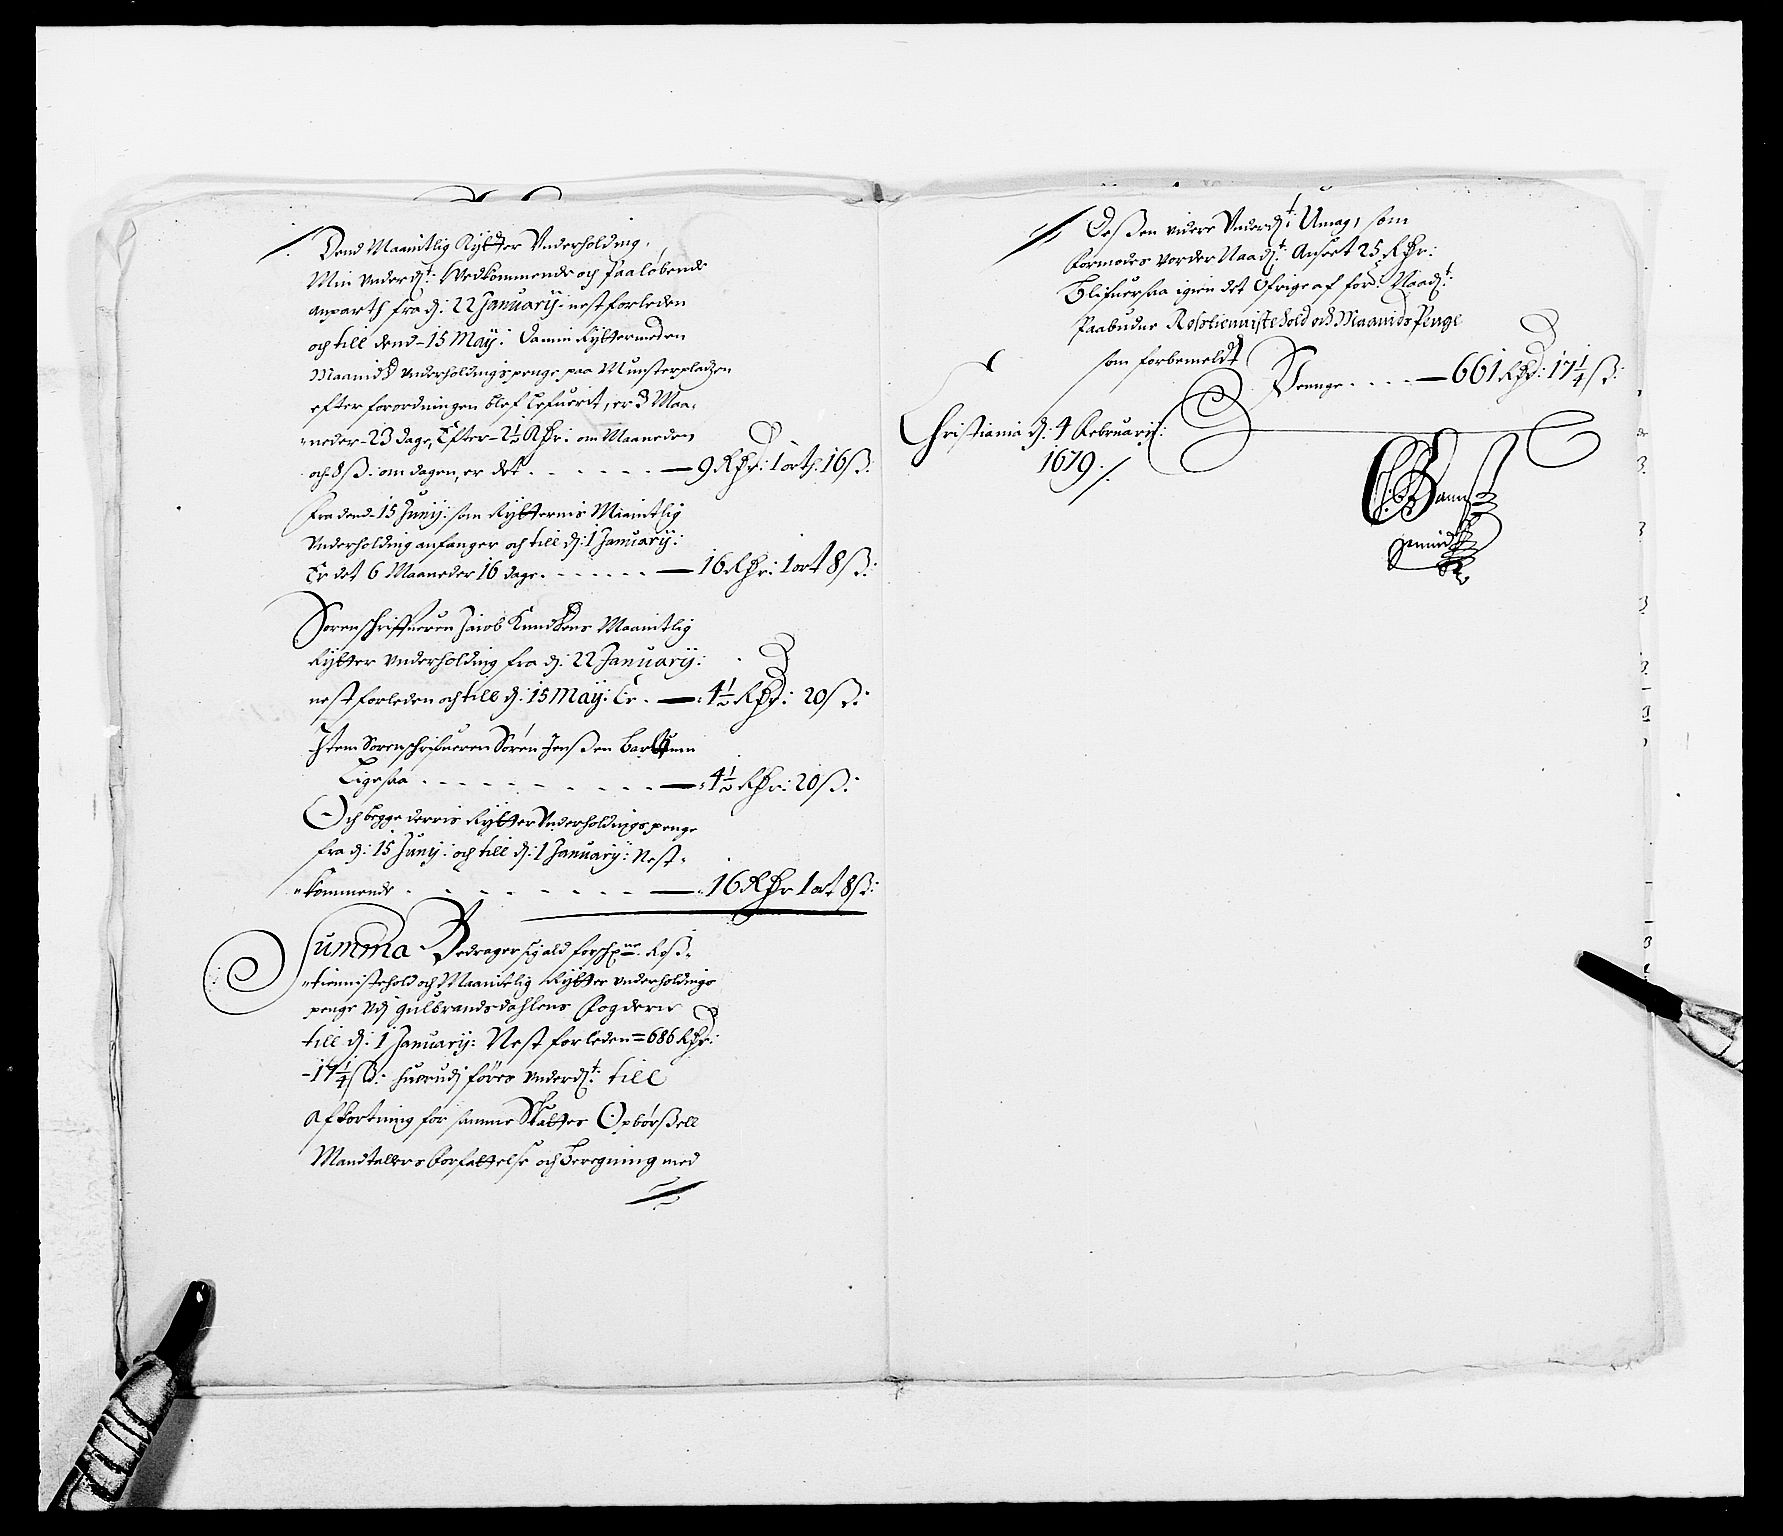 Dend Maanitlig Rÿtter Underholding,
Min Underd: Vedkommende och Paaløbende
anparth fra d: 22 Januarÿ: nest forleden
och till dend 15 Maÿ: Damin Rÿttermeden
Maanids Underholdingspenge paa Munsterpladzen
efter forordningen blef lefuerit, er 3 Maa-
neder 23 dage, Efter 2½ Rdr: om Maaneden
och 8 ß: om dagen, er det - - - 9 Rdr: 1 ort: 16 ß:
Fra dend 15 Junÿ: som Rÿtternis Maanitlig
Underholding anfanger och till d: 1 Januarÿ:
Er det 6 Maaneder 16 dage - - - 16 Rdr: 1 ort 8 ß:
Sorenschriffueren Jacob Knudsens Maanitlig
Rÿtter Underholding fra d: 22 Januarÿ:
nest forleden och till d: 15 Maÿ: Er - 4½ Rdr: 20 ß:
Item Sorenschrifueren Sören Jenßen
Ligesaa - - - 4½ Rdr: 20 ß:
Och begge derris Rÿtter Underholdings penge
fra d: 15 Junÿ: och till d: 1 Januarÿ: Nest-
kommende - - - 16 Rdr 1 ort 8 ß:
Summa Bedrager sig ald Roß-
tiennistehold och Maanitlig Rÿtter underholdings
penge Udj Gulbrandsdahlens Fogderie
till d: 1 Januarÿ: Nest forleden = 686 Rdr:
17¼ ß: huorudj føres Underd: till
Afkortning for samme Skatter Opbörßell
Mandtallers Forfattelse och Beregning med
Deßen videre Underd: Umag, som
formodes vorder Naad: Anseet 25 Rdr:
Blifuer saa igien det Öfrige af ford: Naad:
Paabudne Rosstienniste hold och Maanids Penge
som forbemeldt
Penge - - - 661 Rdr: 17¼ ß:
Christiania d: 4 Februarÿ:
1679